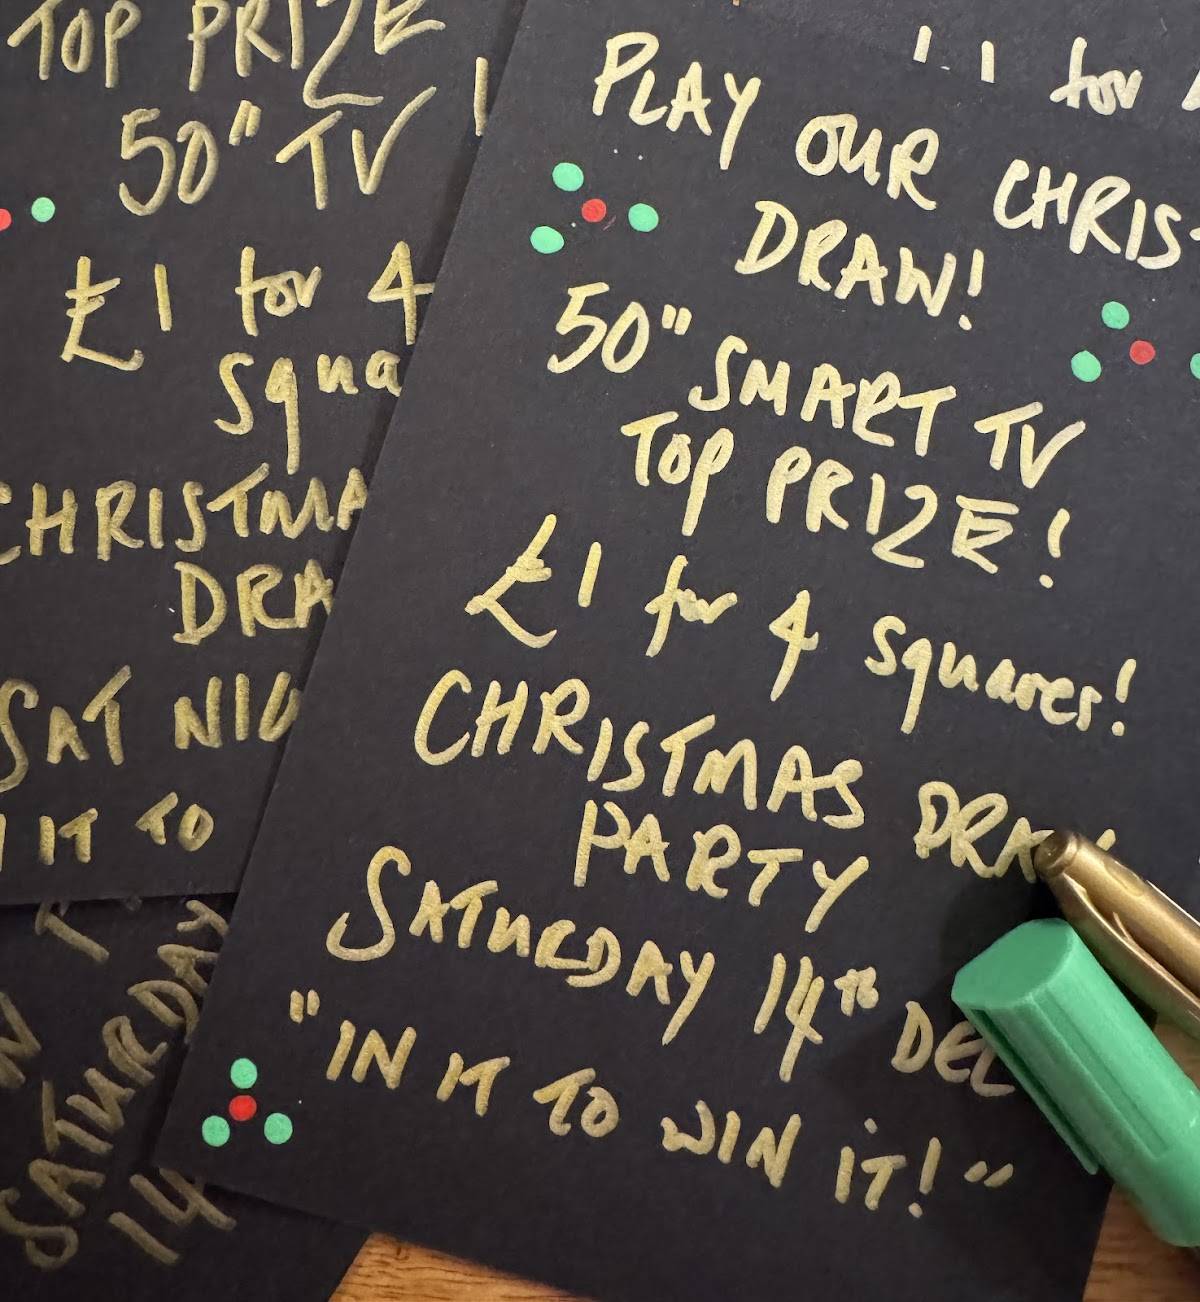 TOP PRIZE
50" TV
£1 for 4
squa
CHRISTMA
DRA
SAT NIG
IT TO
SATURDAY
14
for
PLAY OUR CHRIST
DRAW!
50" SMART TV
TOP PRIZE!
£1 for 4 squares!
CHRISTMAS DRAW
PARTY
SATURDAY 14TH DEC
"IN IT TO WIN iT!"